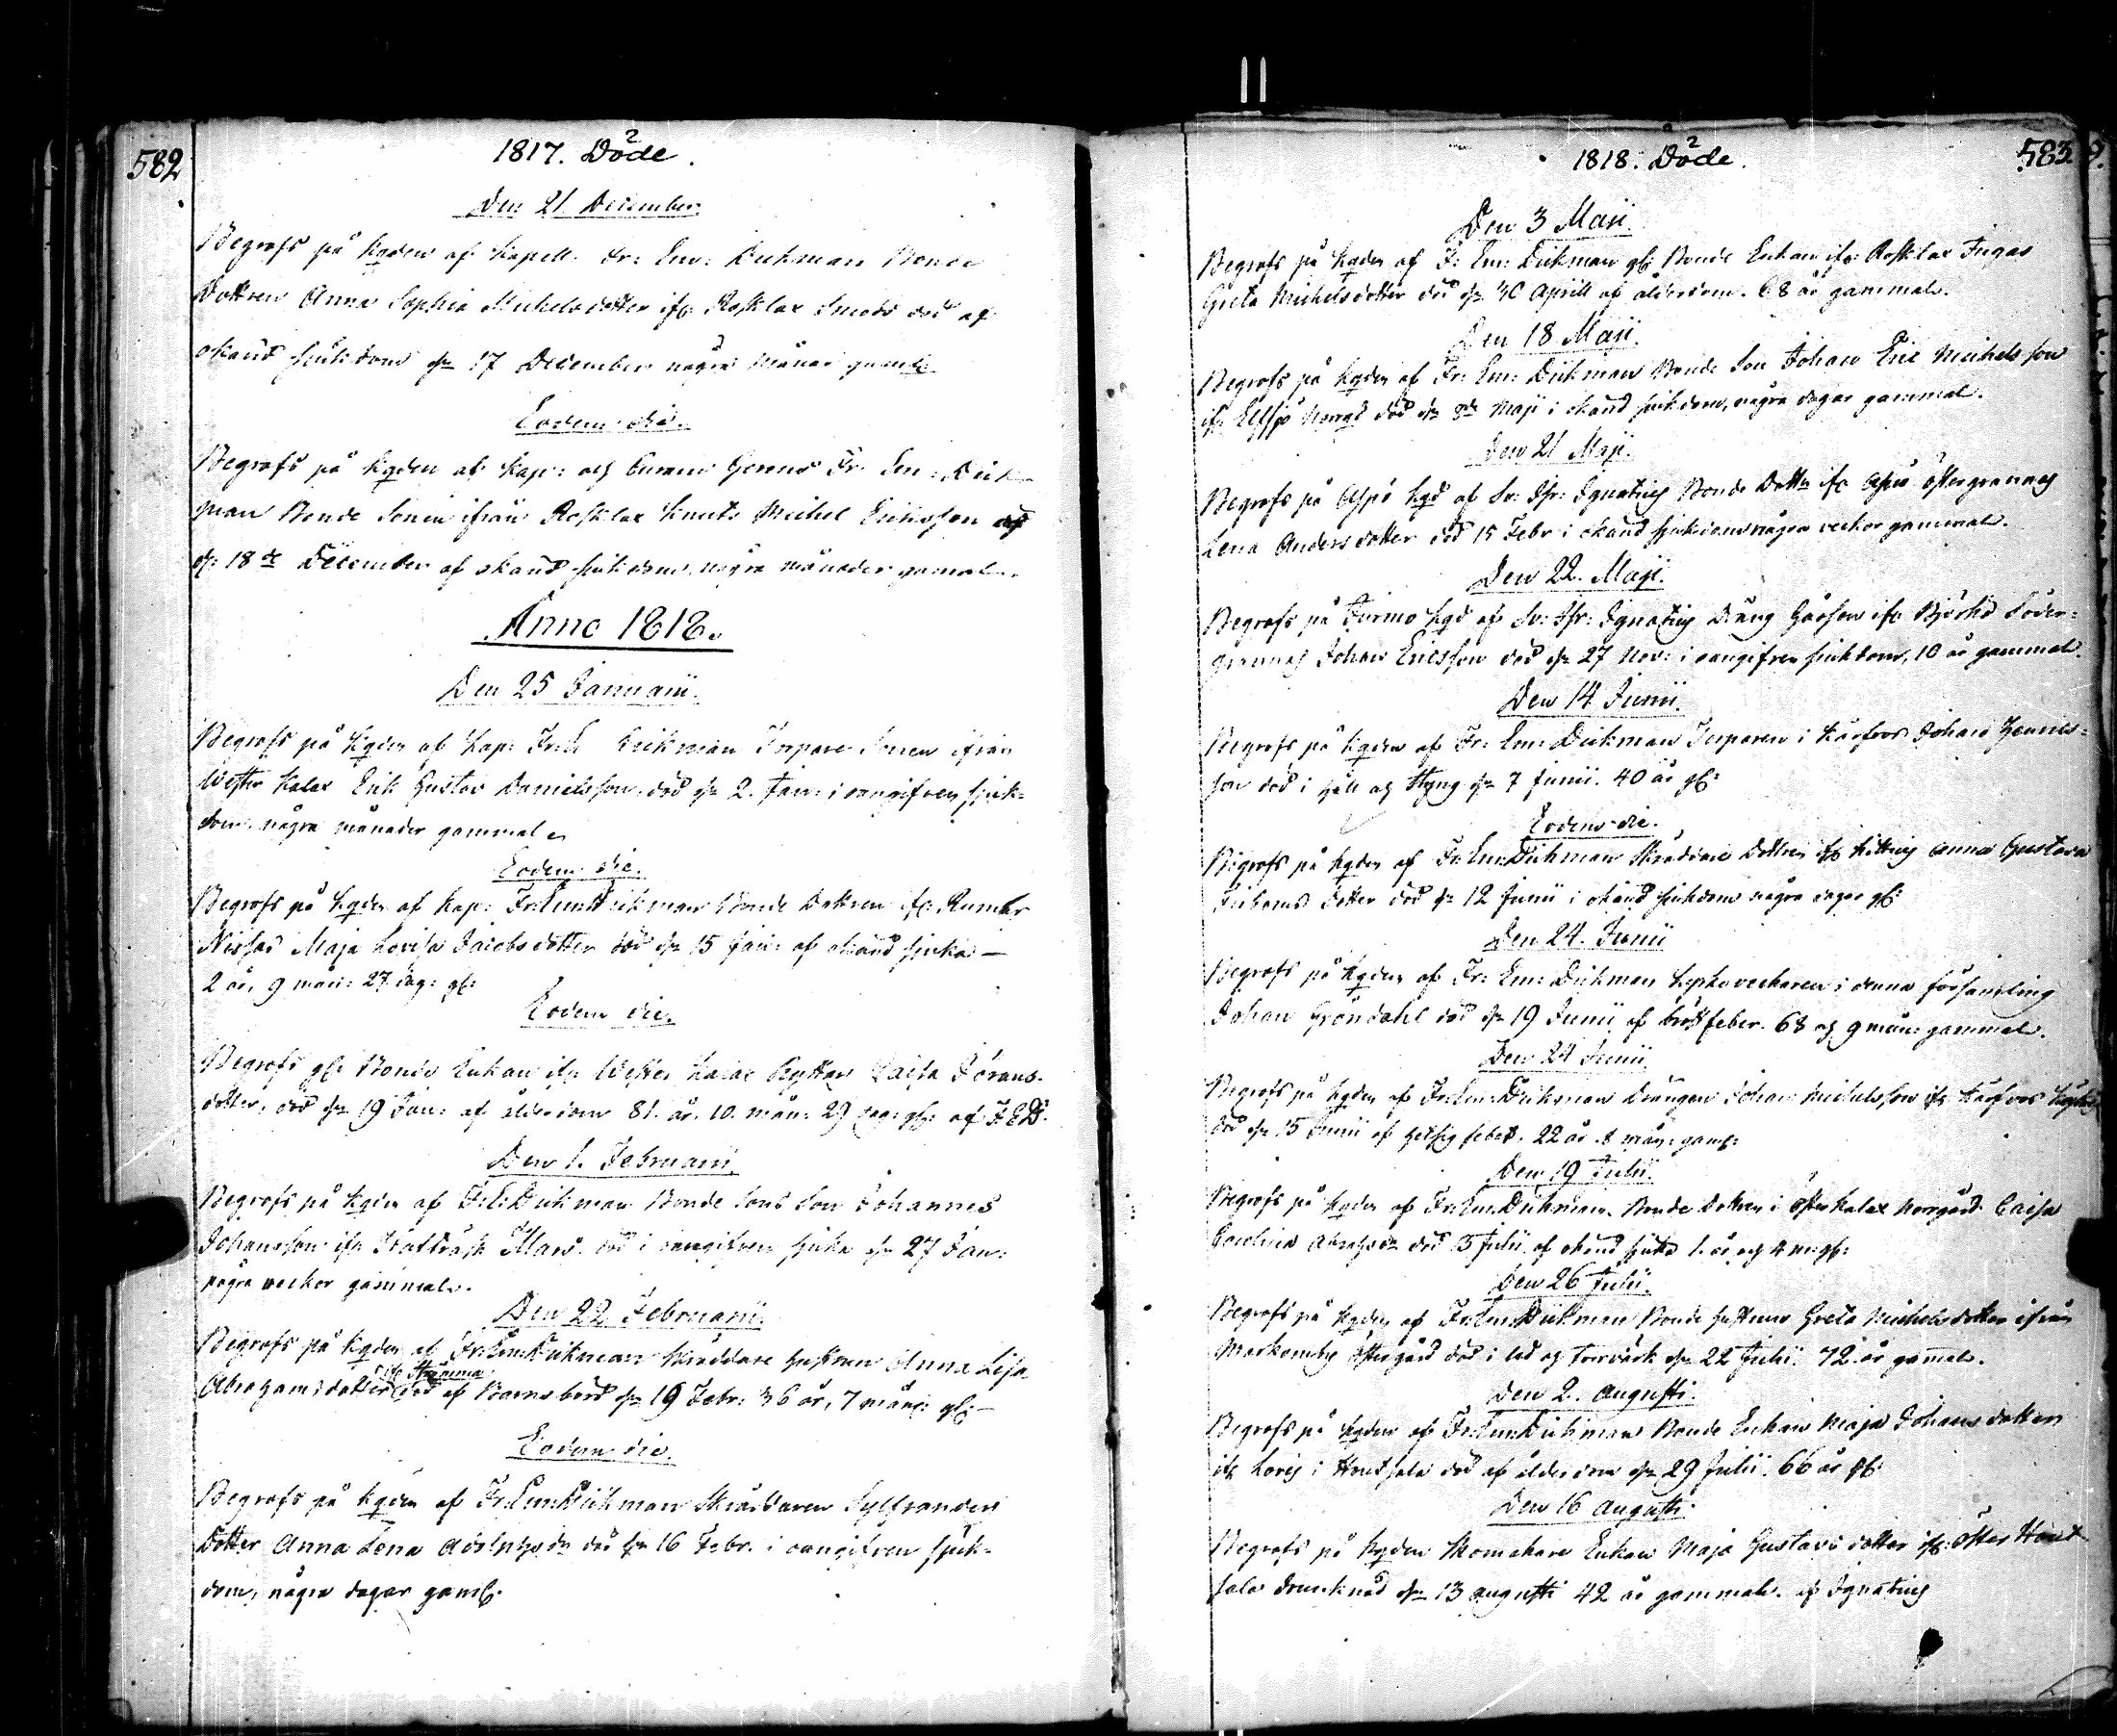 582
1817. Döde.
Den 21 December.
Begrofs på Kgden af Kapell. Fr: Em: Dickman Bonde
Dottren Anna Sophia Michelsdotter ifr: Rosklax Smeds död af
okänd sjukdom d: 17 December några månar gamal
Eodem die.
Begrofs på Kgden af Kap: och Fr. Em: Dick-
man Bonde Sonen ifrån Rosklax Knuts Michel Ericsson
d: 18de December af okänd sjukdom, några månader gamal.
Anno 1818.
Den 25 Januarii.
Begrofs på Kgden af Kap: Fr: E: Dickman Torpare Sonen ifrån
Wester Kalax Erik Gustav Danielsson, död d: 2. Jan: i oangifven sjuk-
dom några månader gammal.
Eodem die.
Begrofs på Kgden af Kap: Fr: Em: Dickman Bonde Dottren ifr: Rumar
Nissas Maja Lovisa Jacobsdotter död d: 15 Jan: af okänd sjuka —
2 år, 9 mån: 27 dag: gl:
Eodem die.
Begrofs gl: Bonde Enkan ifr: Wester Kalax Ryttars Caisa Jörans-
dotter, död d: 19 Jan: af ålderdom 81. år. 10. mån: 29 dag: gl: af F: E D:
Den 1. Februarii.
Begrofs på Kgden af F: E: Dickman Bonde Sons Son Johannes
Johansson ifr: Träsk Mars. död i oangifven sjuka d: 27 Jan:
några veckor gammal.
Den 22 Februarii.
Begrofs på Kgden af Fr: Em: Dickman Skräddare hustrun Anna Lisa
ifr: Strömma
Abrahamsdotter död af Barnsbörd d: 19 Febr: 36 år, 7 mån: gl: —
Eodem die.
Begrofs på Kgden af Fr: Em: Dickman Skräddaren Sylfranders
Dotter Anna Lena Adolphsdr död d: 16 Febr. i oangifven sjuk-
dom, några dagar gaml.
1818. Döde.
583
Den 3 Maji.
Begrofs på Kgden af F: Em: Dickman gl: Bonde Enkan ifr: Rosklax Jugas
Greta Michelsdotter död d: 30 Aprill af ålderdom. 68 år gammal.
Den 18 Maji.
Begrofs på Kgden af Fr: Em: Dickman Bonde Son Johan Eric Michelsson
ifr: Elfsjö Norrgd död d: 8de Maji i okänd sjukdom, några dagar gammal.
Den 21 Maji.
Begrofs på Aspö Kgd af Sv: Ignatius Bonde Dottr ifr Aspö Östergrannas
Lena Andersdotter död 15 Febr i okänd sjukdom några veckor gammal.
Den 22. Maji.
Begrofs på Jurmo Kgd af Sv: Ignatius Dräng Gåssen ifr: Björkö Söder-
grannas Johan Ericsson död d: 27 Nov: i oangifven sjukdom, 10 år gammal.
Den 14 Junii.
Begrofs på Kgden af Fr: Em: Dickman Torparen i Kårfvos Johan Henrics-
son död i håll och styng d: 7 Junii. 40 år gl:
Eodem die.
Begrofs på Kgden af Fr: Em: Dickman Skräddare Dottren ifr Kittuis Anna Gustava
dotter död d: 12 Junii i okänd sjukdom några dagar gl:
Den 24. Junii
Begrofs på Kgden af Fr: Em: Dickman Kyrkoveckaren i denna församling
Johan Gröndahl död d: 19 Junii af bröstfeber. 68 och 9 mån: gammal.
Den 24 Junii.
Begrofs på Kgden af Fr: Em: Dickman Drängen Johan Michelsson ifr Kårfvos
död d: 15 Junii af hetsig feber. 22 år. 8 mån: gaml:
Den 19 Julii.
Begrofs på Kgden af Fr: Em: Dickman. Bonde Dottren i Österkalax Norgård Caisa
Carolina Abrahsdr död 13 Julii af okänd sjuka 1. år och 4 m: gl:
Den 26 Julii.
Begrofs på Kgden af Fr: Em: Dickman Bonde hustrun Greta Michelsdotter ifrån
Markomby Östergård död i led och torrvärk d: 22 Julii. 72. år gamal.
Den 2. Augusti.
Begrofs på Kgden af Fr: Em: Dickman Bonde Enkan Maja Johansdotter
ifr: Löris i Houtsala död af ålderdom d: 29 Julii. 66 år gl:
Den 16 Augusti.
Begrofs på Kgden Skomakare Enkan Maja Gustavsdotter ifr: Öster Hout-
sala drunknad d: 13 Augusti 42 år gammal. af Ignatius